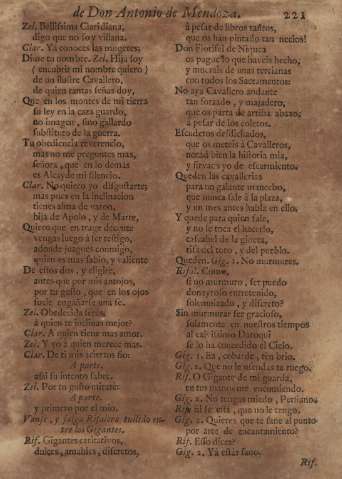 de Don Antonio de Mendoza.
221
Zel. Bellissima Claridiana,
digo que no soy villana.
Clar. Ya conoces las mugeres;
Dime tu nombre. Zel. Hija soy
(encubrir mi nombre quiero)
de un ilustre Cavallero,
de quien tantas señas doy,
Que en los montes de mi tierra
fu ley en la caza guardo,
no imagen, sino gallardo
substituto de la guerra.
Tu obediencia reverencio,
mas no me preguntes mas,
señora, que en lo demás
es Alcayde mi silencio.
Clar. No quiero yo disgustarte;
mas pues en la inclinacion
tienes alma de varon,
hija de Apolo, y de Marte,
Quiero que en trage decente
vengas luego a ser testigo,
adonde juzgues conmigo,
quien es mas sabio, y valiente
De estos dos, y eligire,
antes que por mis antojos,
por tu gusto, que en los ojos
suele engañarse una fe.
Zel. Obedecida seras;
à quien te inclinas mejor?
Clar. A quien tiene mas amor.
Zel. Y yo à quien merece mas.
Clar. De ti mis aciertos fio:
A parte.
assi su intento sabre.
Zel. Por tu gusto mirarè:
A parte.
y primero por el mio.
Vanse, y salga Rifaloro tullido en-
tre los Gigantes.
Rif. Gigantes caritativos,
dulces, amables, discretos,
à pesar de libros tantos,
que os han pintado tan necios!
Don Florisel de Niquea
os pague lo que haveis hecho,
y murais de unas tercianas
con todos los Sacramentos:
No aya Cavallero andante
tan forzado, y majadero,
que os parta de arriba abaxo
à pesar de los coletos.
Escuderos desdichados,
que os meteis à Cavalleros,
notad bien la historia mia,
y sirvaos yo de escarmiento.
Queden las cavallerias
para un galante mochecho,
que nunca sale à la plaza,
y un mes antes habla en ello.
Y quede para quien sale,
y no le toca el hacerlo,
catatumba de la gineta,
risa del toro, y del pueblo.
Queden. Gig. 1. No murmures.
Rifal. Como,
si no murmuro, ser puedo
donayroso, entretenido,
solemnizado, y discreto?
Sin murmurar ser gracioso,
solamente en nuestros tiempos
al
se lo ha concedido el Cielo.
Gig. 1. Ea, cobarde, ten brio.
Gig. 2. Que no le ofendas te ruego.
Rif. O Gigante de mi guarda,
en tus manos me encomiendo.
Gig. 2. No tengas miedo, Persiano.
Rif. Ni se està, que no le tengo.
Gig. 2. Quieres que te sane al punto
por arte de encantamiento?
Rif. Esso dices?
Gig. 2. Ya estàs sano.
Rif.